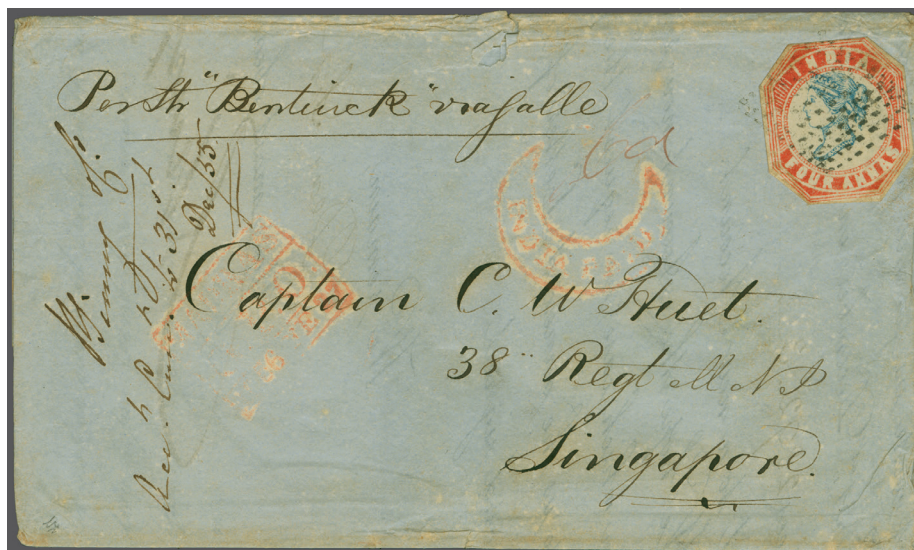 Per Str "Bentinck" via Galle
INDIA
FOUR ANNAS
INDIA PAID
Captain C. W Huet.
38" Regt M N I
Singapore.
Binny &
31st
Dec/55